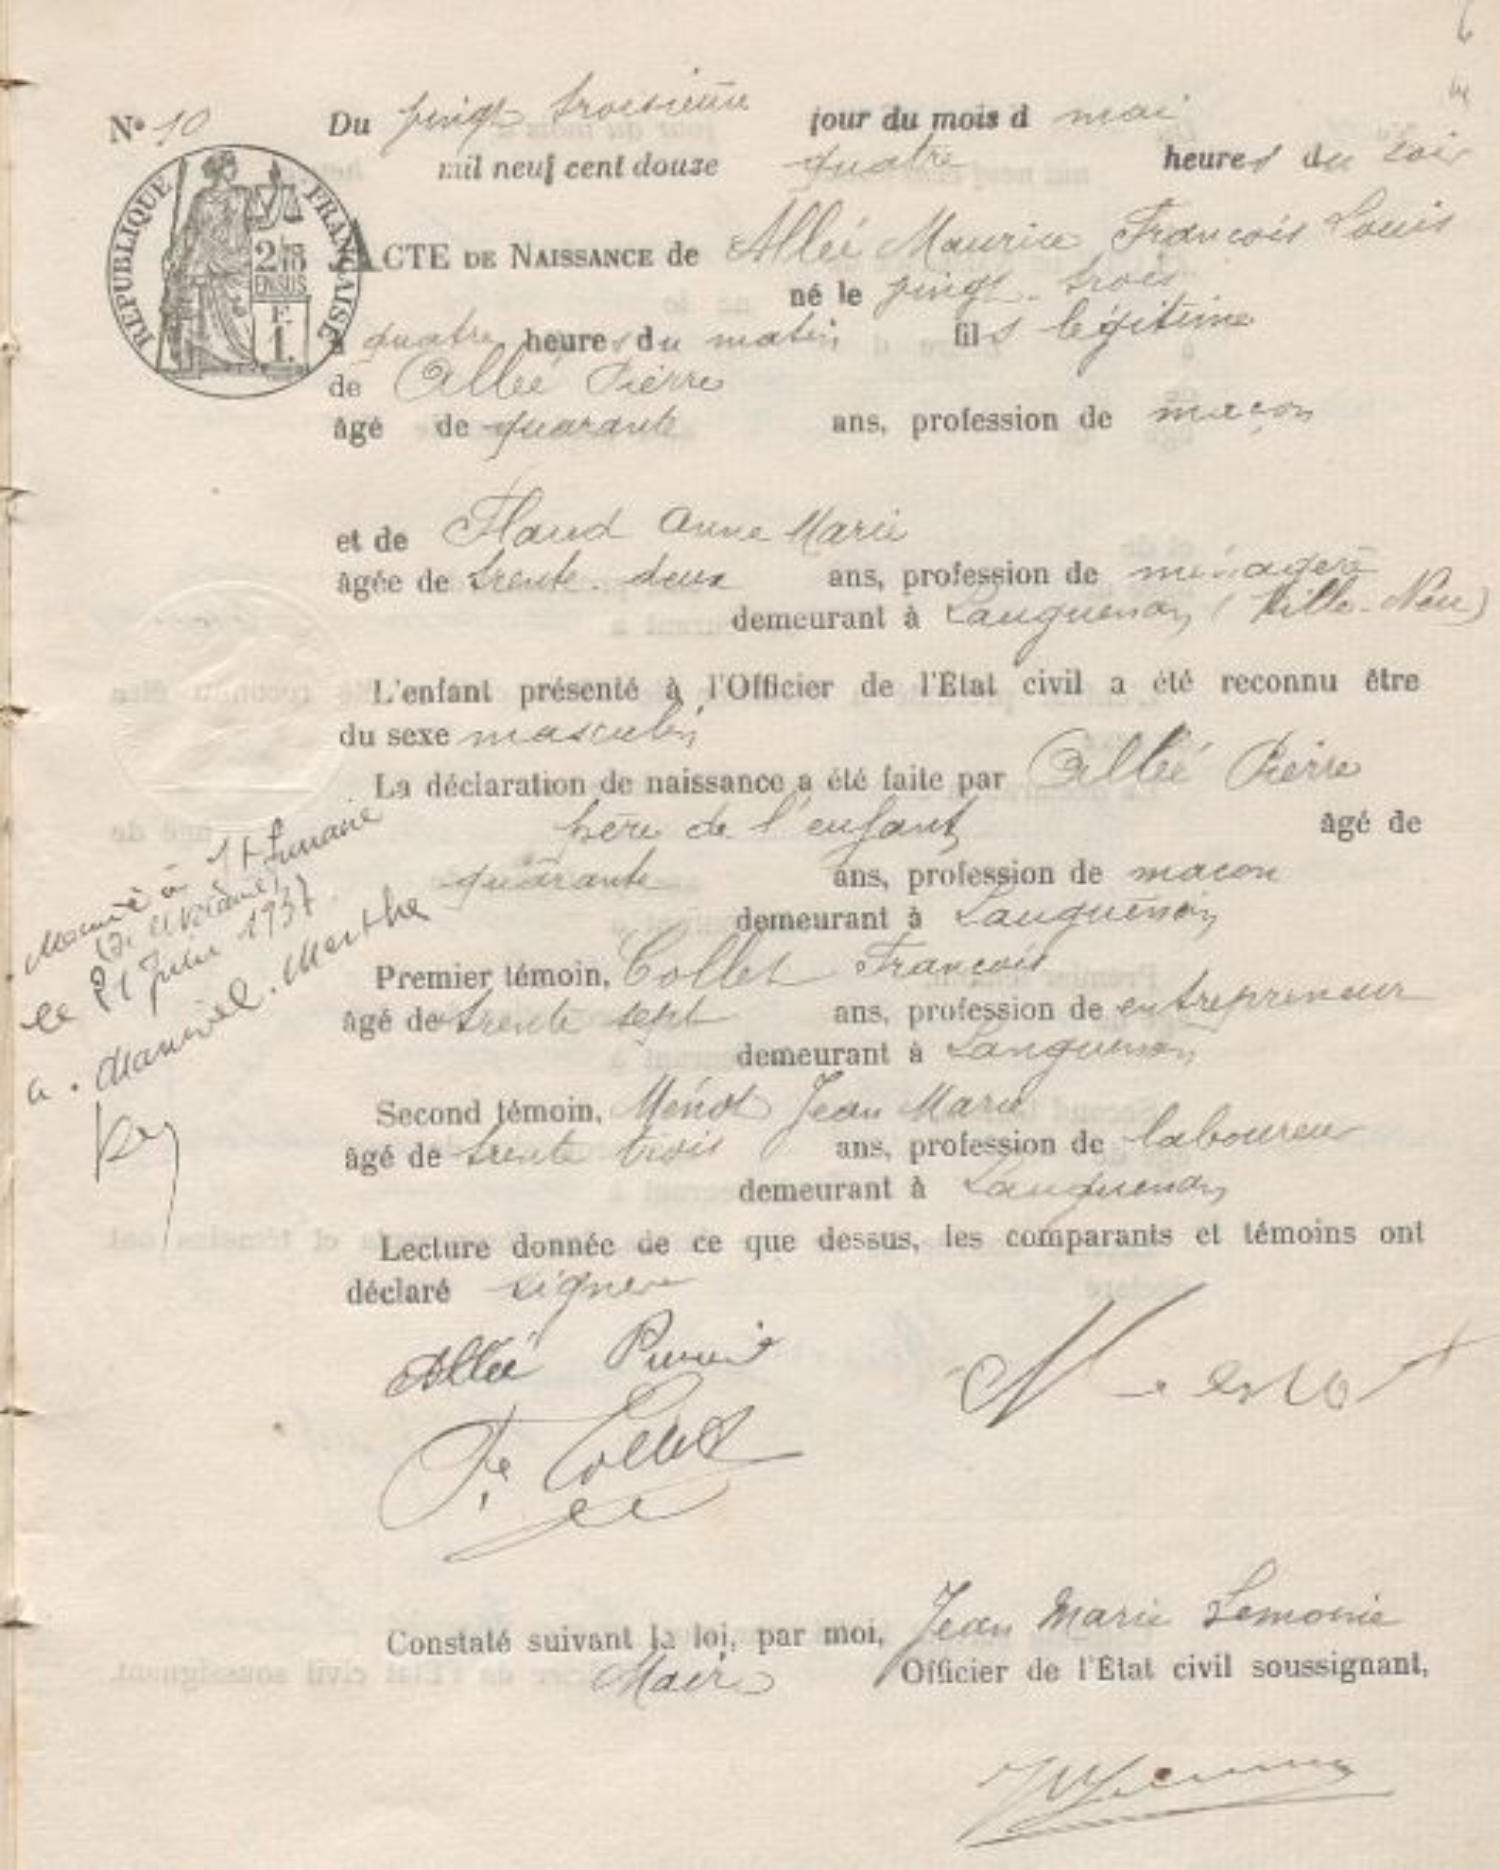 N° 10 Du vingt troisième jour du mois d mai
mil neuf cent douze quatre heures du soir
REPUBLIQUE FRANÇAISE
ACTE DE NAISSANCE de Alleé Maurice François Louis
né le vingt-trois
à quatre heures du matin fils légitime
de Alleé Pierre
âgé de quarante ans, profession de maçon
et de Flaud Anne Marie
âgée de trente-deux ans, profession de ménagère
demeurant à Languenan (Ville-Neu)
L'enfant présenté à l'Officier de l'État civil a été reconnu être
du sexe masculin
La déclaration de naissance a été faite par Alleé Pierre
père de l'enfant âgé de
quarante ans, profession de macon
demeurant à Languenan
Premier témoin, Collet François
âgé de trente sept ans, profession de entrepreneur
demeurant à Languenan
Second témoin, Ménot Jean Marie
âgé de trente trois ans, profession de laboureur
demeurant à Languenan
Lecture donnée de ce que dessus, les comparants et témoins ont
déclaré signer
Marié à St
le 21 juin 1937
a
Marthe
Alleé Pierre
F. Collet
Constaté suivant la loi, par moi, Jean Marie Lemoine
Maire Officier de l'État civil soussignant,